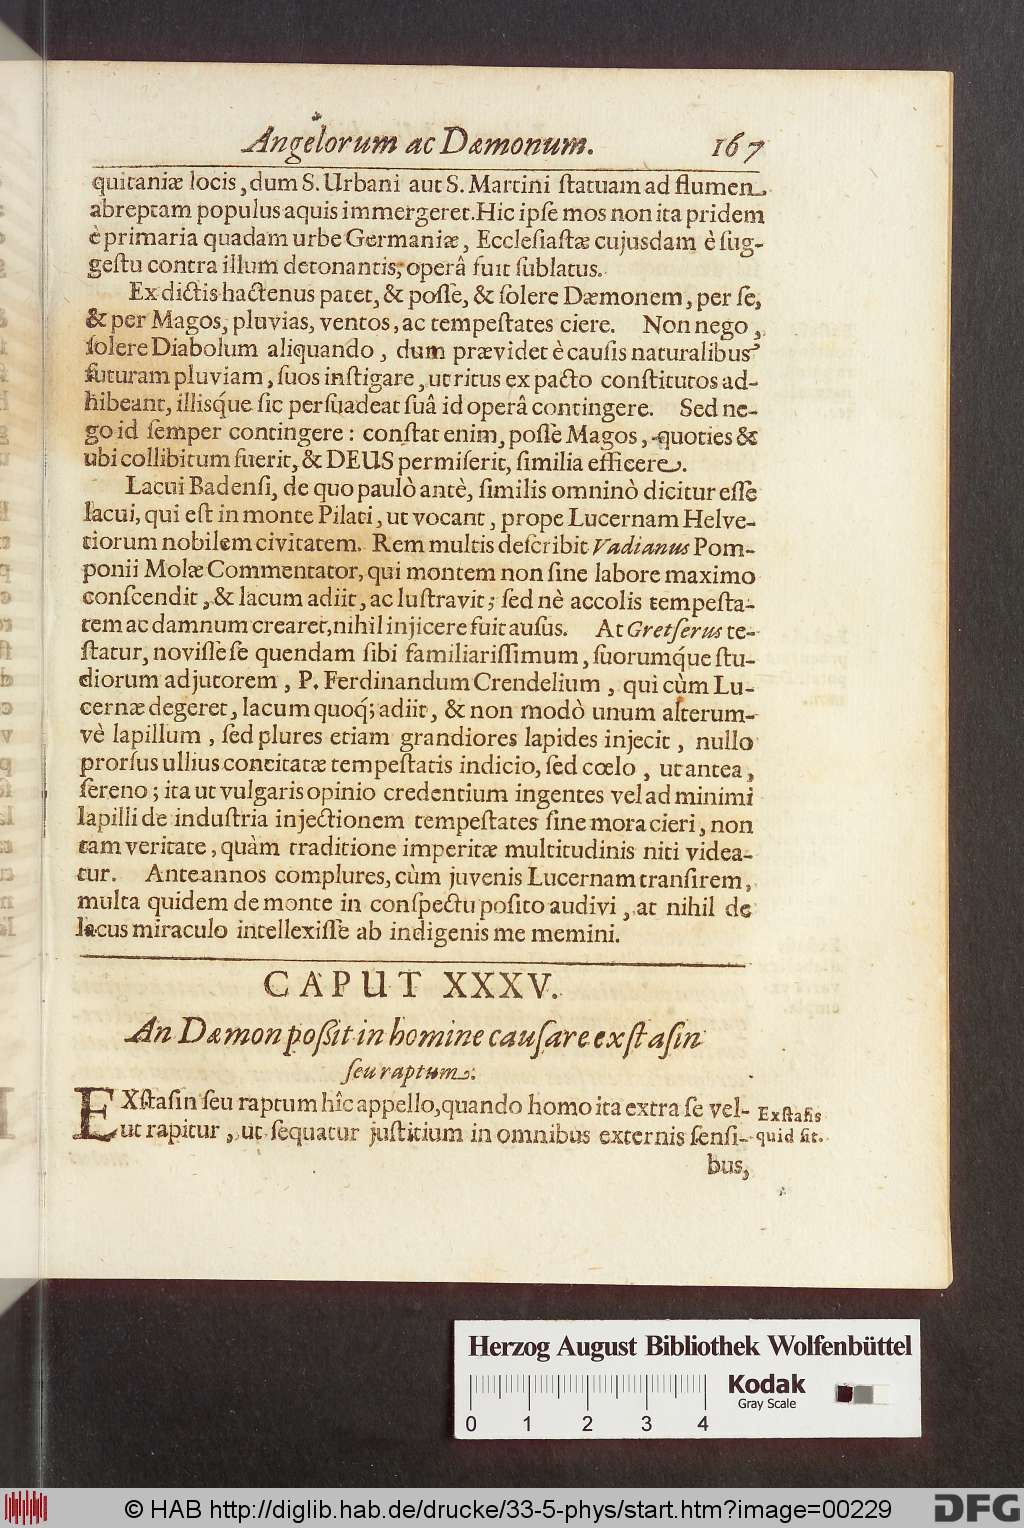 Angelorum ac Dæmonum. 167
quitaniæ locis, dum S. Urbani aut S. Martini ſtatuam ad flumen
abreptam populus aquis immergeret. Hic ipſe mos non ita pridem
è primaria quadam urbe Germaniæ, Eccleſiaſtæ cujusdam è ſug-
geſtu contra illum detonantis, operâ fuit ſublatus.
Ex dictis hactenus patet, & poſſe, & ſolere Dæmonem, per ſe,
& per Magos, pluvias, ventos, ac tempeſtates ciere. Non nego,
ſolere Diabolum aliquando, dum prævidet è cauſis naturalibus
futuram pluviam, ſuos inſtigare, ut ritus ex pacto conſtitutos ad-
hibeant, illisq́ue ſic perſuadeat ſuâ id operâ contingere. Sed ne-
go id ſemper contingere: conſtat enim, poſſe Magos, quoties &
ubi collibitum fuerit, & DEUS permiſerit, ſimilia efficere.
Lacui Badenſi, de quo paulò antè, ſimilis omninò dicitur eſſe
lacui, qui eſt in monte Pilati, ut vocant, prope Lucernam Helve-
tiorum nobilem civitatem. Rem multis deſcribit Vadianus Pom-
ponii Molæ Commentator, qui montem non ſine labore maximo
conſcendit, & lacum adiit, ac luſtravit; ſed nè accolis tempeſta-
tem ac damnum crearet, nihil injicere fuit auſus. At Gretſerus te-
ſtatur, noviſſe ſe quendam ſibi familiariſſimum, ſuorumq́ue ſtu-
diorum adjutorem, P. Ferdinandum Crendelium, qui cùm Lu-
cernæ degeret, lacum quoq́; adiit, & non modò unum alterum-
vè lapillum, ſed plures etiam grandiores lapides injecit, nullo
prorſus ullius concitatæ tempeſtatis indicio, ſed cœlo, ut antea,
ſereno; ita ut vulgaris opinio credentium ingentes vel ad minimi
lapilli de induſtria injectionem tempeſtates ſine mora cieri, non
tam veritate, quàm traditione imperitæ multitudinis niti videa-
tur. Ante annos complures, cùm juvenis Lucernam tranſirem,
multa quidem de monte in conſpectu poſito audivi, at nihil de
lacus miraculo intellexiſſe ab indigenis me memini.
CAPUT XXXV.
An Dæmon poßit in homine cauſare exſtaſin
ſeu raptum.
EXſtaſin ſeu raptum hîc appello, quando homo ita extra ſe vel-
ut rapitur, ut ſequatur juſtitium in omnibus externis ſenſi-
Exſtaſis
quid ſit.
bus,
Herzog August Bibliothek Wolfenbüttel
Kodak
Gray Scale
0 1 2 3 4
© HAB http://diglib.hab.de/drucke/33-5-phys/start.htm?image=00229
DFG